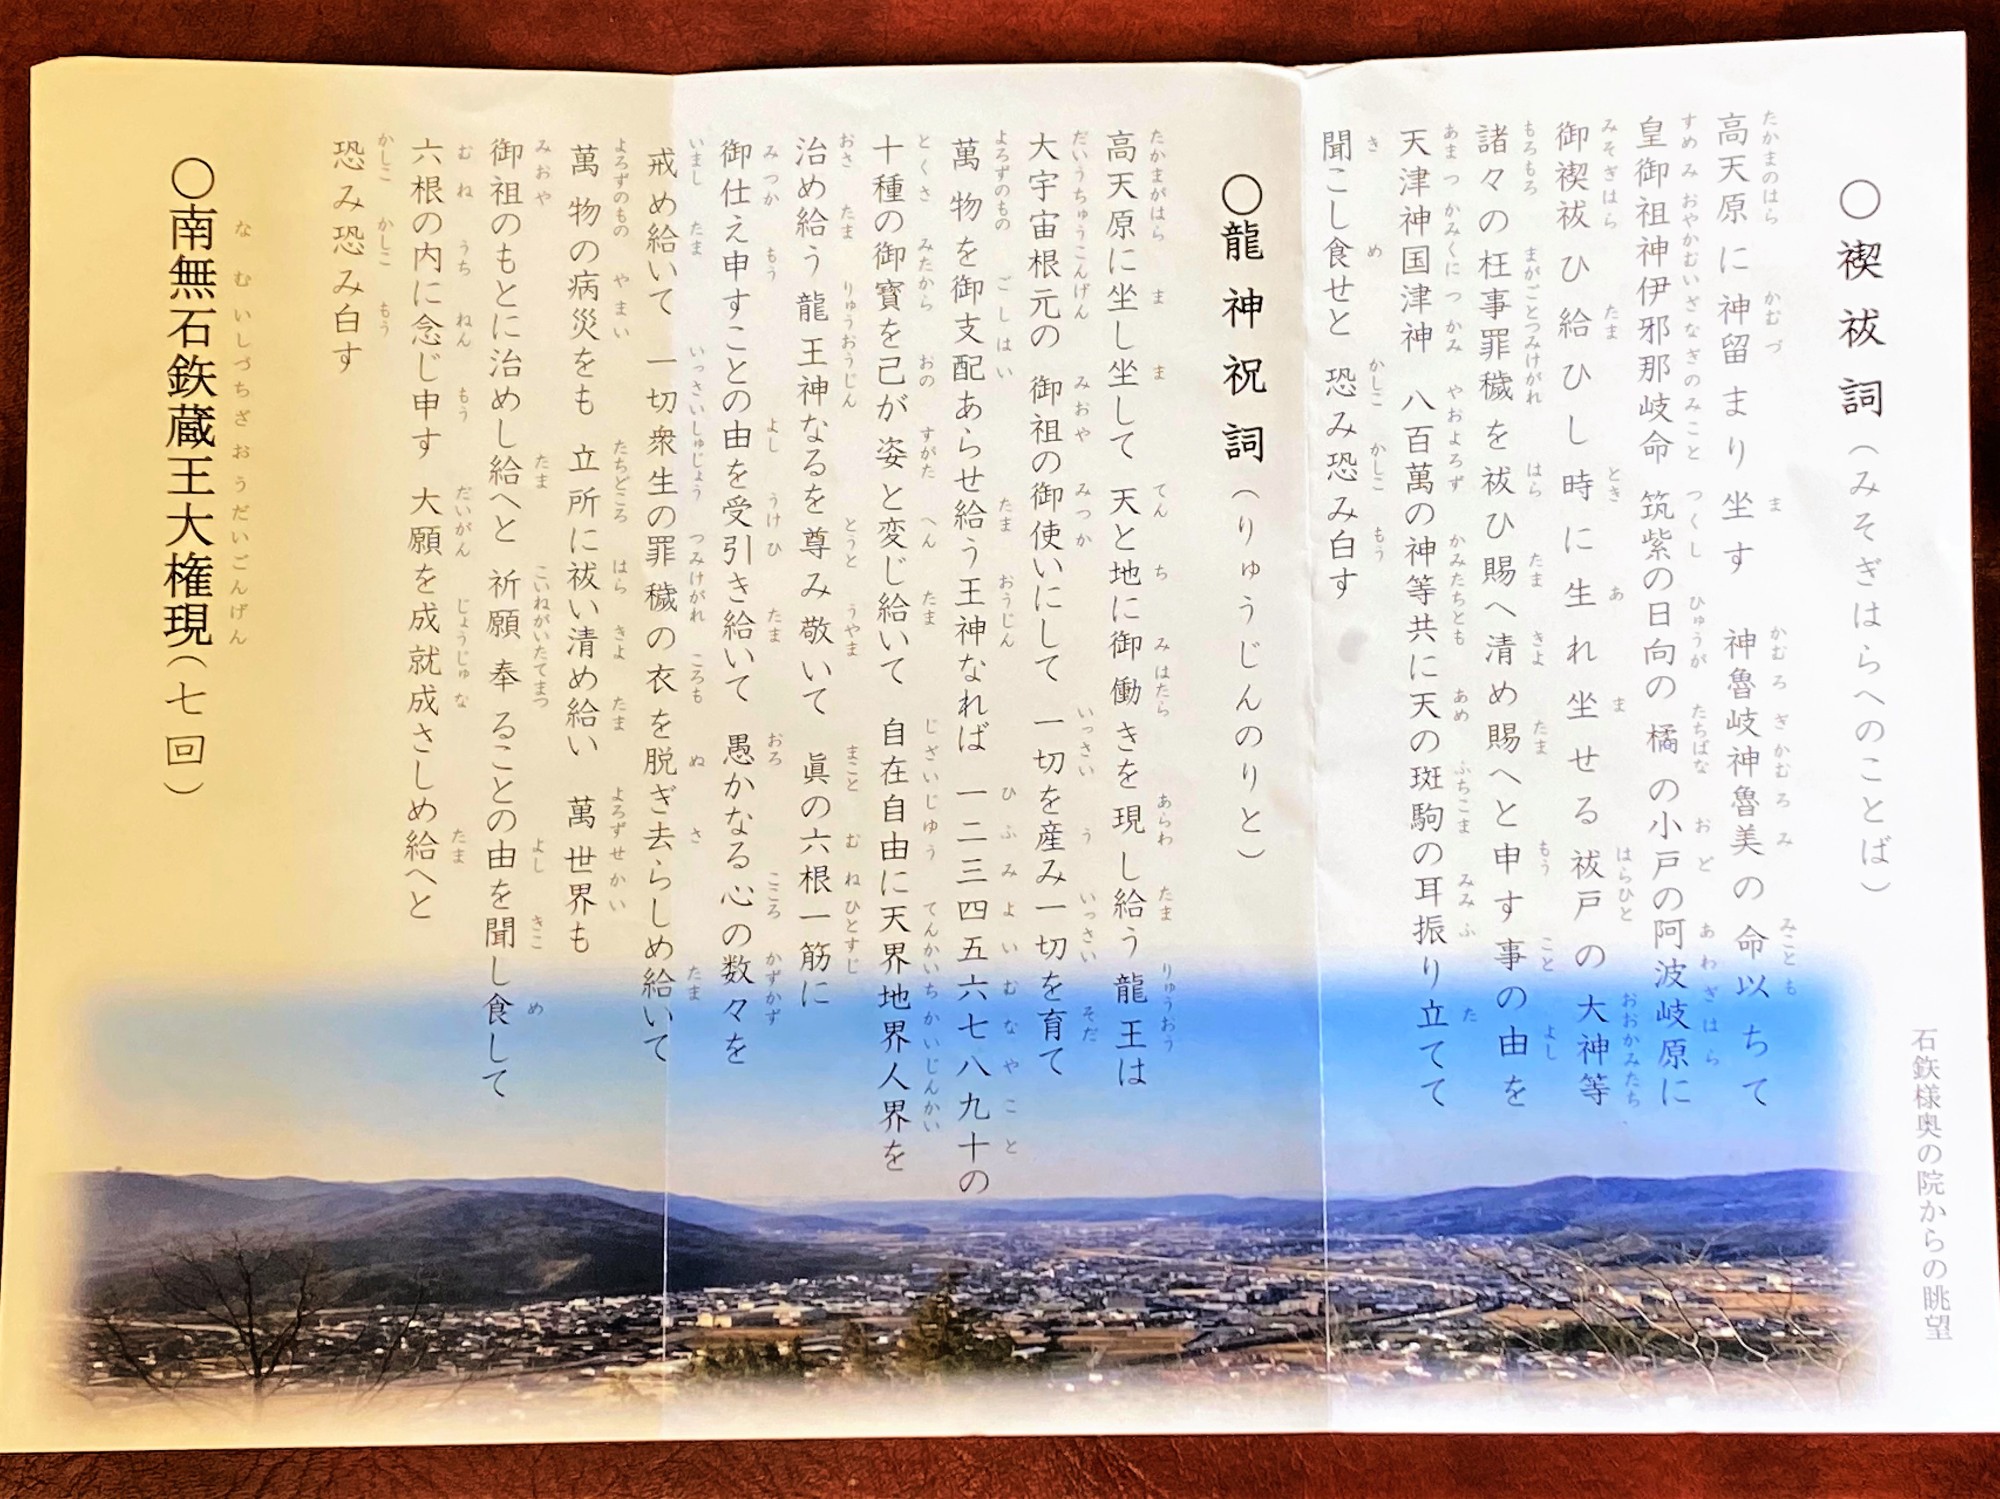 〇禊祓詞(みそぎはらへのことば)
高天原に神留まり坐す 神魯岐神魯美の命以ちて
皇御祖神伊邪那岐命 筑紫の日向の橘の小戸の阿波岐原に
御禊祓ひ給ひし時に生れ坐せる祓戸の大神等
諸々の枉事罪穢を祓ひ賜へ清め賜へと申す事の由を
天津神国津神 八百萬の神等共に天の斑駒の耳振り立てて
聞こし食せと 恐み恐み白す
〇龍神祝詞(りゅうじんのりと)
高天原に坐し坐して 天と地に御働きを現し給う龍王は
大宇宙根元の 御祖の御使いにして 一切を産み一切を育て
萬物を御支配あらせ給う王神なれば 一二三四五六七八九十の
十種の御寶を己が姿と変じ給いて 自在自由に天界地界人界を
治め給う龍王神なるを尊み敬いて 眞の六根一筋に
御仕え申すことの由を受引き給いて 愚かなる心の数々を
戒め給いて 一切衆生の罪穢の衣を脱ぎ去らしめ給いて
萬物の病災をも 立所に祓い清め給い 萬世界も
御祖のもとに治めし給へと 祈願奉ることの由を聞し食して
六根の内に念じ申す 大願を成就成さしめ給へと
恐み恐み白す
〇南無石鈇蔵王大権現(七回)
なむいしづちざおうだいごんげん
石鈇様奥の院からの眺望